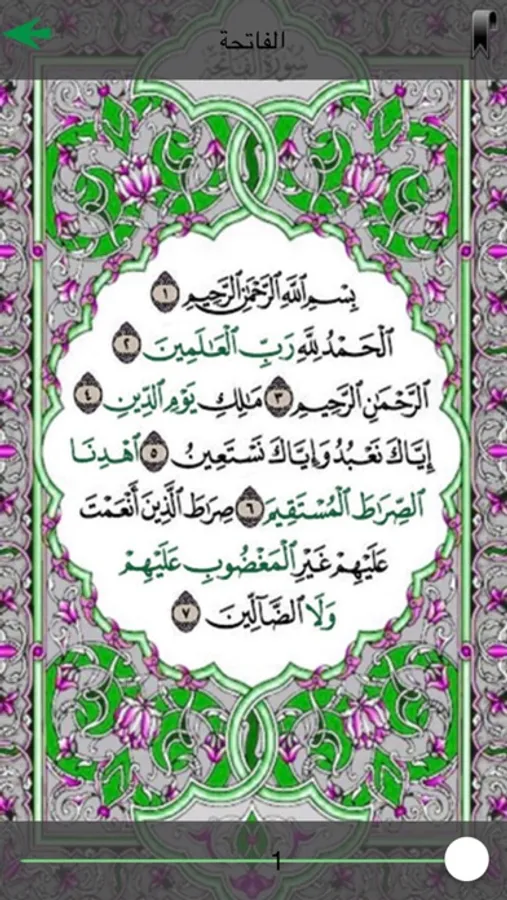 الفاتحة
سورة الفاتحة
بِسْمِ اللَّهِ الرَّحْمَٰنِ الرَّحِيمِ ١
الْحَمْدُ لِلَّهِ رَبِّ الْعَالَمِينَ ٢
الرَّحْمَٰنِ الرَّحِيمِ ٣ مَالِكِ يَوْمِ الدِّينِ ٤
إِيَّاكَ نَعْبُدُ وَإِيَّاكَ نَسْتَعِينُ ٥ اهْدِنَا
الصِّرَاطَ الْمُسْتَقِيمَ ٦ صِرَاطَ الَّذِينَ أَنْعَمْتَ
عَلَيْهِمْ غَيْرِ الْمَغْضُوبِ عَلَيْهِمْ
وَلَا الضَّالِّينَ ٧
1